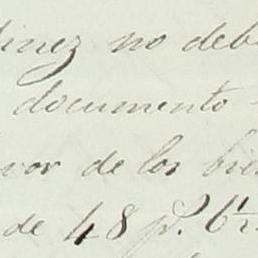 tinez no deb
documento
vor de los bie
de 48 p.